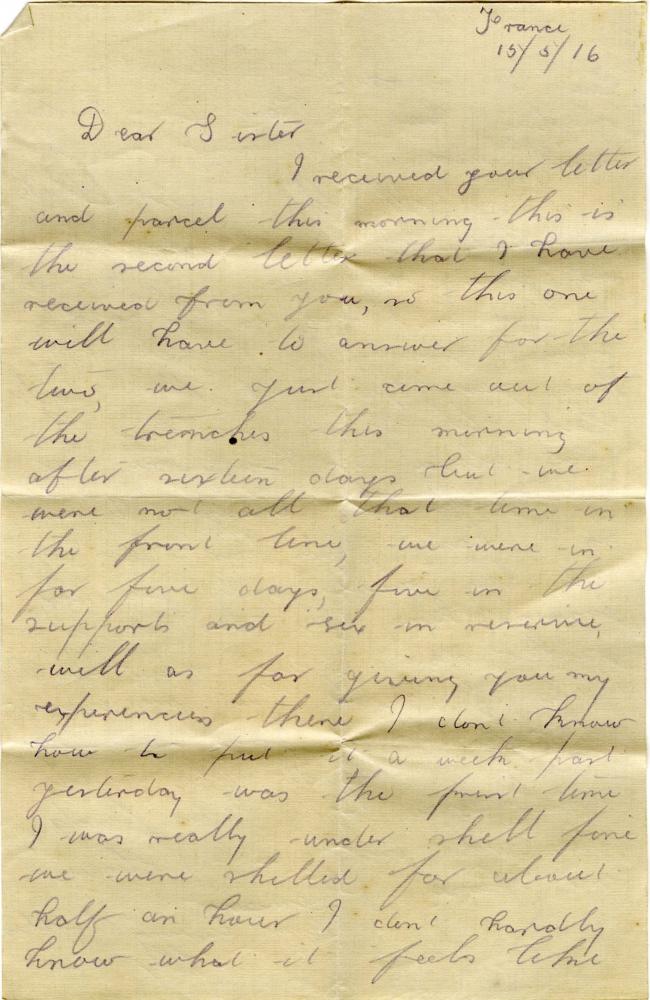 France
15/5/16
Dear Sister
I received your letter
and parcel this morning this is
the second letter that I have
received from you, so this one
will have to answer for the
two, we just came out of
the trenches this morning
after sixteen days but we
were not all that time in
the front line, we were in
for five days, five in the
supports and six in reserve,
well as for giving you my
experiences there I don't know
how to put it a week past
yesterday was the first time
I was really under shell fire
we were shelled for about
half an hour I dont hardly
know what it feels like